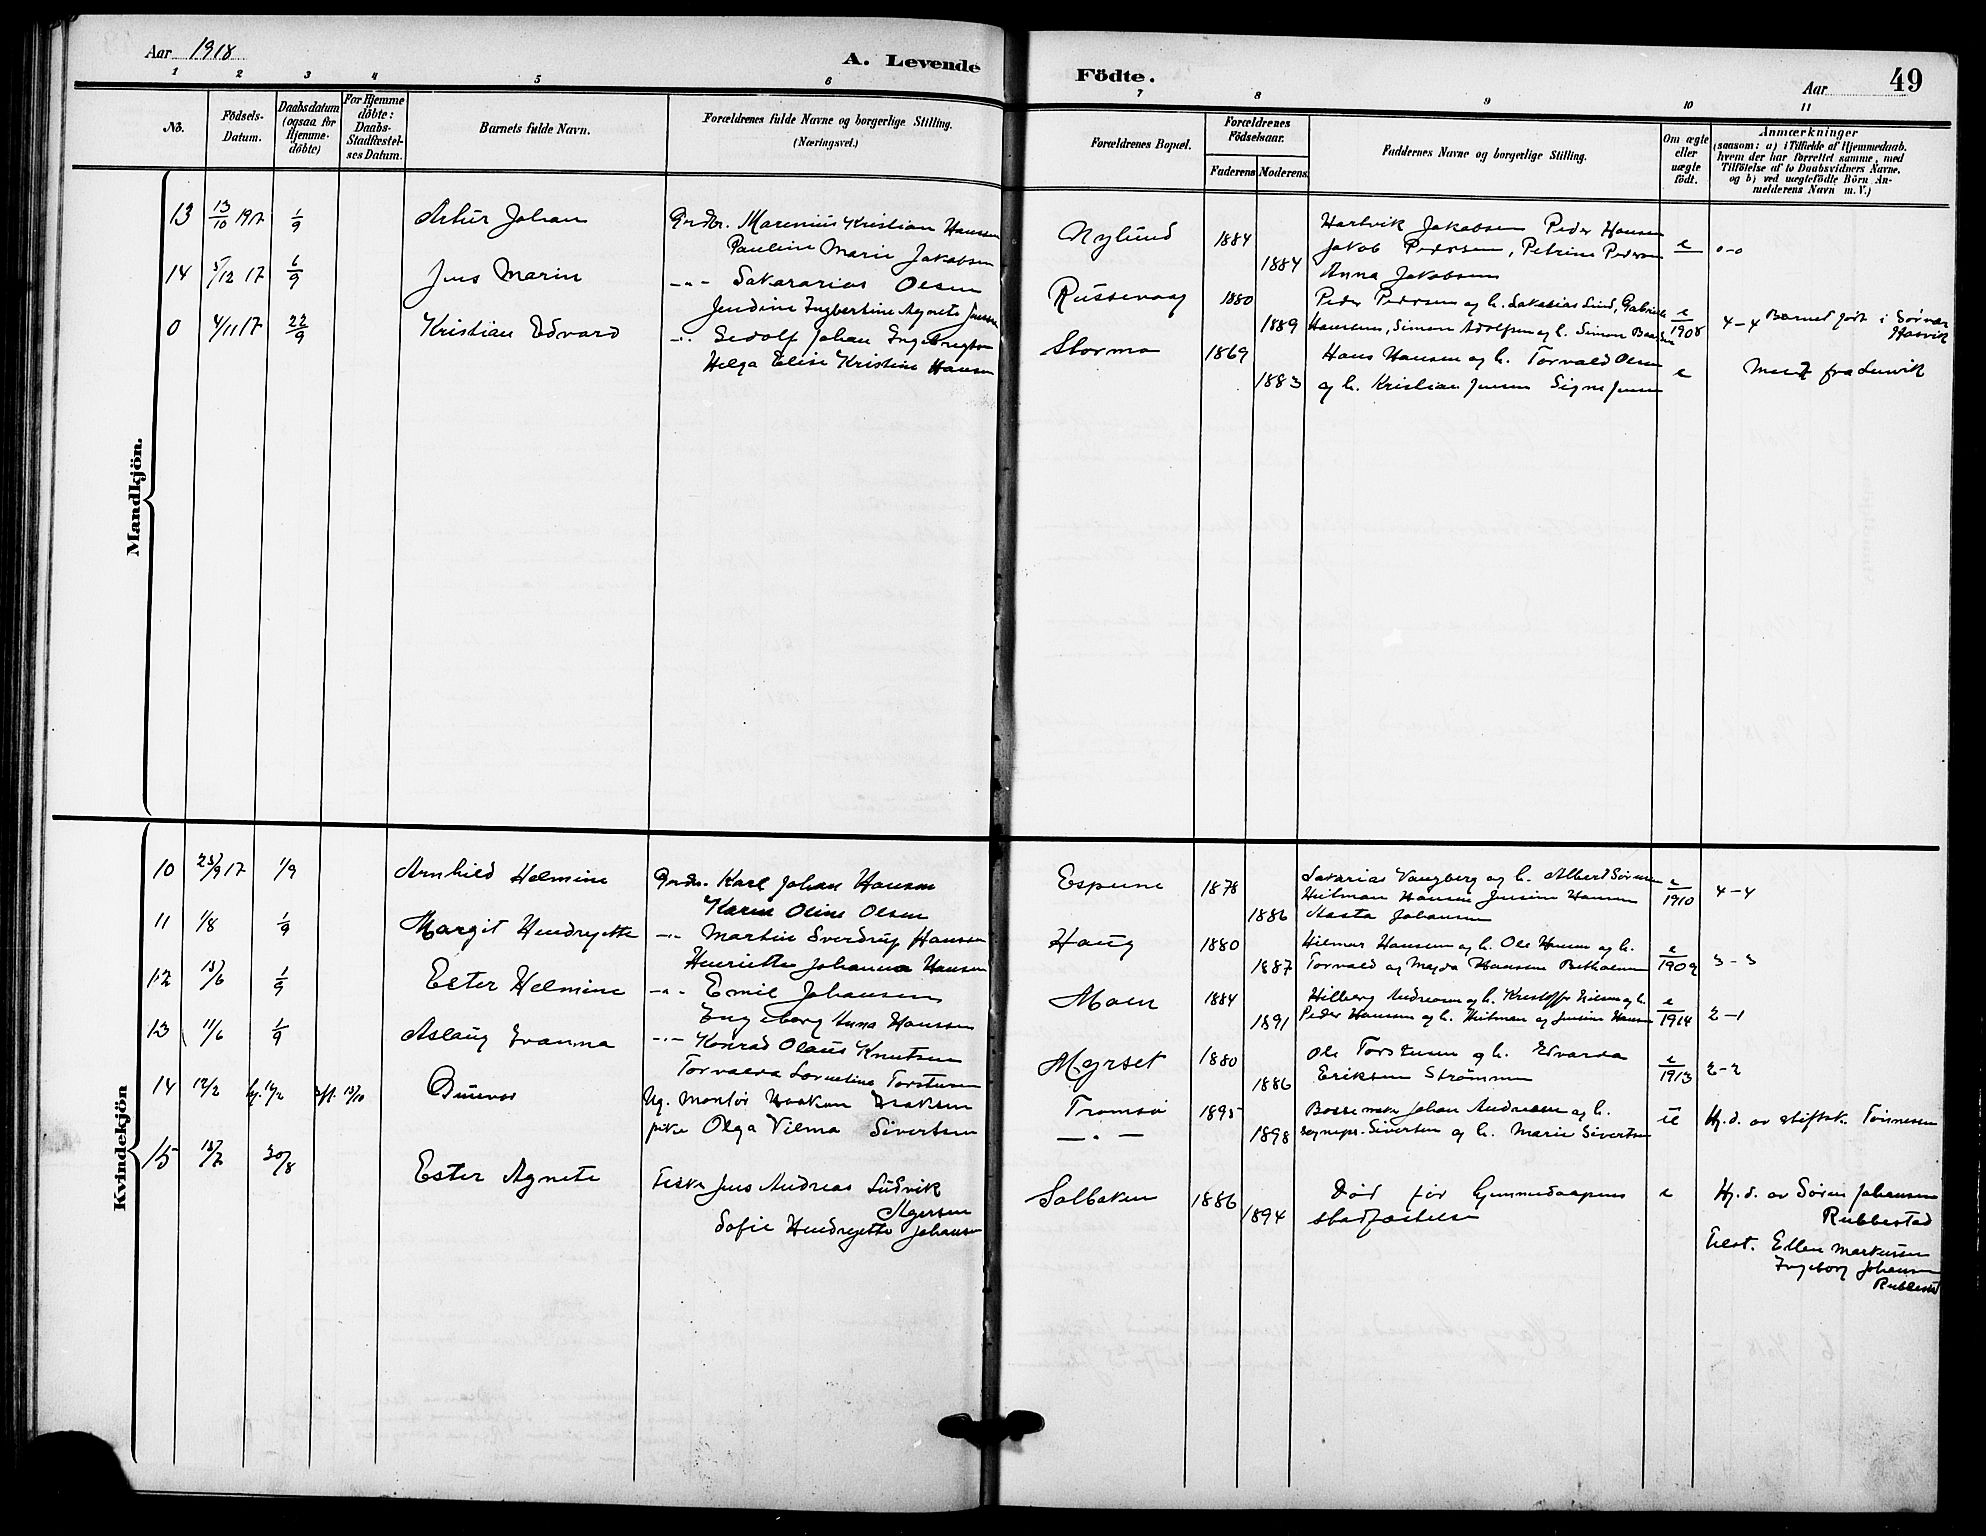 Aar 1918
A. Levende Födte.
Aar
49
1 2 3 4 5 6 7 8 9 10 11
No.
Födsels-
Datum.
Daabsdatum
(ogsaa for
Hjemme-
döbte)
For Hjemme
döbte:
Daabs-
Stadfæstel-
ses Datum.
Barnets fulde Navn.
Forældrenes fulde Navne og borgerlige Stilling.
(Næringsvei.)
Forældrenes Bopæl.
Forældrenes
Födselsaar.
Faderens Moderens
Faddernes Navne og borgerlige Stilling.
Om ægte
eller
uægte
födt.
Anmærkninger
(saasom: a) i Tilfælde af Hjemmedaab,
hvem der har forrettet samme, med
Tilföielse af to Daabsvidners Navne,
og b) ved uægtefödte Börn An-
melderens Navn m. V.)
Mandkjön.
13 13/10 1917 1/9 Artur Johan Gmbr. Marenius Kristian Hanssen
Pauline Marie Jakobsen
Nylund 1884 1884
Hartvik Jakobsen Peder Hansen
Jakob Pedersen, Petrine Pedersen
Anna Jakobsen
e 0-0
14 5/12 17 1/9 Jens Marin -"- Sakararias Olsen
Jendine Ingbertine Agnete Jensen
Russevaag 1880 1889
Peder Pedersen og h. Sakarias Lund, Gabriele
Hansens, Simon Adolfsen og h. Simon
e/1908 4-4 Barnet født i Sørvær
Hasvik
0 4/11 17 22/9 Kristian Edvard -"- Johan Ingebrigtsen
Helga Elise Kristine Hansen
Stormo 1869 1883
Hans Hansen og h. Torvald Olsen
og h. Kristian Jensen Signe Jensen
e fra Lenvik
Kvindekjön
10 23/9 17 1/9 Arnhild Helmine Gmbr. Karl Johan Hansen
Karen Oline Olsen
Espenes 1878 1886
Sakarias Vangberg og h. Albert Sørensen
Hilman Hansen Jensine Hansen
Aasta Johansen
e/1910 4-4
11 1/8 1/9 Margit Hendrejette -"- Martin Sverdrup Hanssen
Henriette Johanna Hansen
Haug 1880 1887
Hilmar Hansen og h. Ole Hansen og h.
Torvald og Magda Hansen
e/1909 3-3
12 13/6 1/9 Ester Helmine -"- Emil Johansen
Ingeborg Anna Hanssen
Moen 1884 1891
Hilberg Andreasen og h. Kristoffer og h.
Peder Hansen og h. Hilman og Jensine Hansen
e/1914 2-1
13 11/6 1/9 Aslaug Ivanna -"- Konrad Olaus Knutsen
Torvalda Lorentine Torstensen
Myrset 1880 1886
Ole Torstensen og h. Edvarda
Eriksen Strømmen
e/1913 2-2
14 12/2 13/10 Gunvor Ug. Montør Haakon Isaksen
pike Olga Vilma Sivertsen
Tromsø 1895
-"- 1898
Johan Andreasen og h.
Sivertsen og h. Marie Sivertsen
ue Hj.d. av stiftsk.
15 13/7 30/8 Ester Agnete Jens Andreas Ludvik
Agersen
Sofie Hendrejette Johansen
Solbakken 1886 1894
Død før hjemmedaapens
stadfæstelse
e Hj.d. av Søren Johansen
Rubbestad
Ellen Markussen
Ingeborg Johansen
Rubbestad